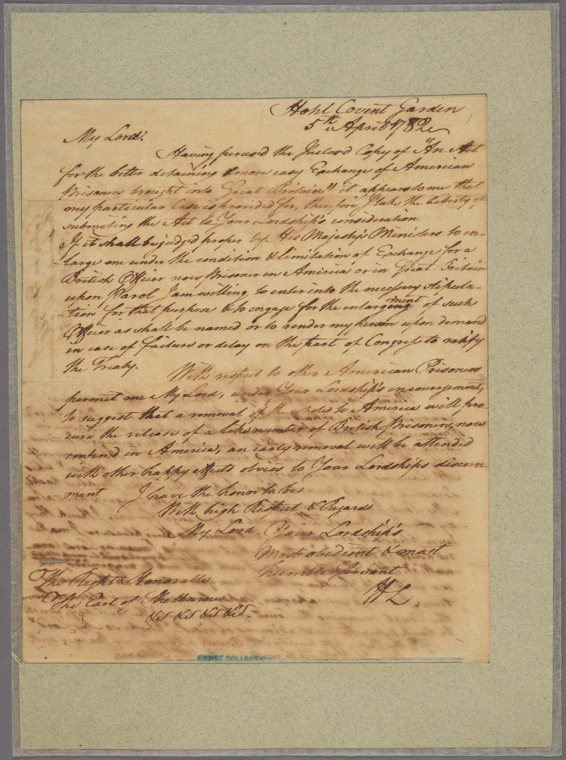 Hotel Covent Garden
5th April 1782
My Lord.
Having perused the Inclosed Copy of "An Act
for the better detaining & more easy Exchange of American
Prisoners brought into Great Britain" it appears to me that
my particular Case is provided for, therefore I take the liberty of
submitting the Act to Your Lordship's consideration
If it shall be judged proper by His Majesty's Ministers to en-
large me under the condition & limitation of Exchange for a
British Officer now Prisoner in America or in Great Britain
upon Parol I am willing to enter into the necessary Stipula-
tion for that purpose & to engage for the enlargement of such
Officer as shall be named or to render my Person upon demand
in case of failure or delay on the part of Congress to ratify
the Treaty.
With respect to other American Prisoners
permit me My Lord, under Your Lordship's encouragement,
to suggest that a removal of the whole to America will pro-
cure the release of a like number of British Prisoners, now
confined in America, an early removal will be attended
with other happy effects obvious to Your Lordship's discern-
ment I have the honor to be
With high Respect & Regard
My Lord Your Lordship's
Most obedient & most
humble Servant
HL
The Right Honorable
The Earl of Shelburne
&ca &ca &ca &ca.
EMMET COLLECTION